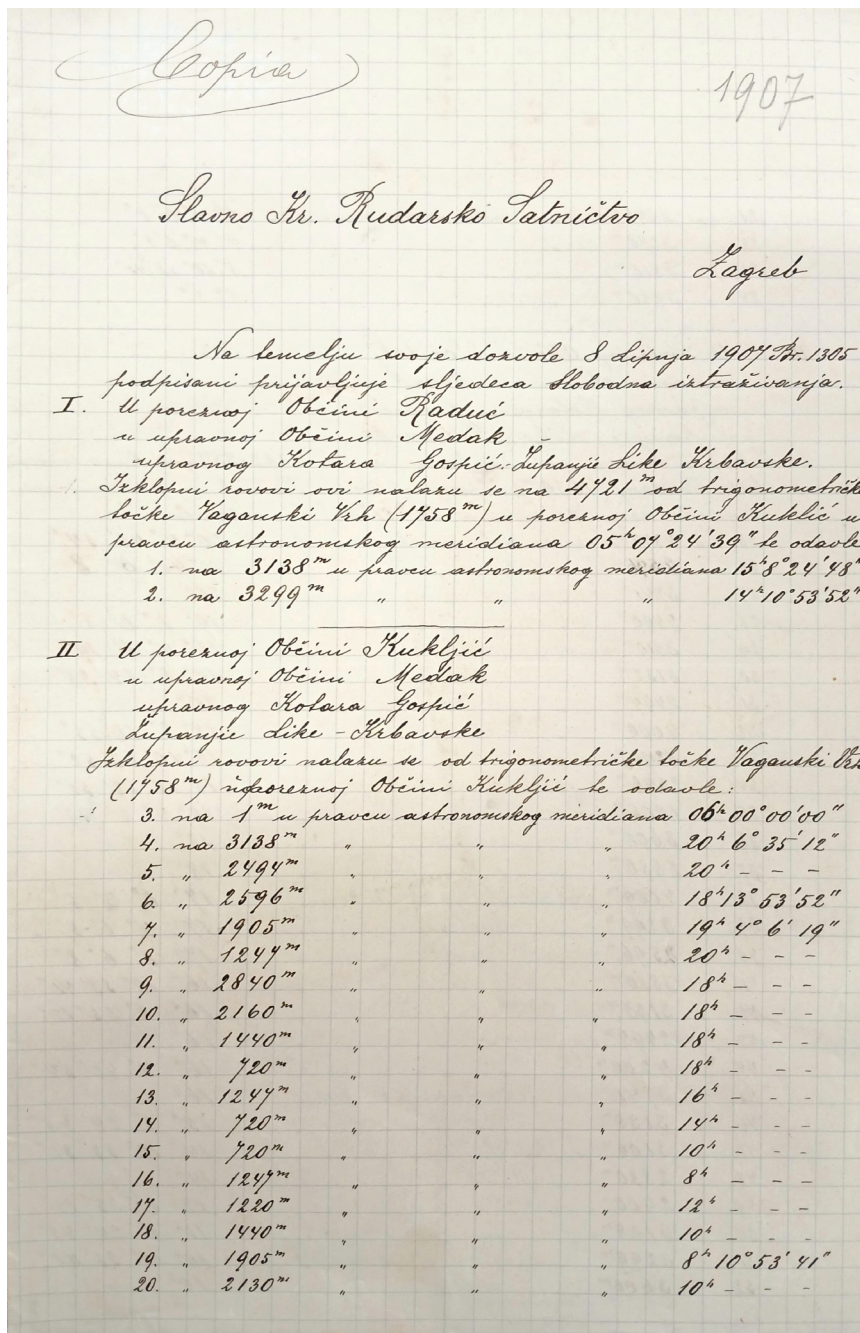 Copia
1907
Slavno Kr. Rudarsko Satničtvo
Zagreb
Na temelju svoje dozvole 8 Lipnja 1907 Br. 1305
podpisani prijavljuje sljedeca slobodna iztraživanja.
I. U poreznoj Občini Raduć
u upravnoj Občini Medak -
upravnog Kotara Gospić. Županjie Like Krbavske.
Izklopni rovovi ovi nalazu se na 4721 m od trigonometričke
točke Vaganski Vrh (1758 m) u poreznoj Občini Kuklić u
pravcu astronomskog meridiana 05 h 07° 24' 39" te odavle
1. na 3138 m u pravcu astronomskog meridiana 15 h 8° 24' 48"
2. na 3299 m " " " 14 h 10° 53' 52"
II U poreznoj Občini Kukljić
u upravnoj Občini Medak
upravnog Kotara Gospić
Županjie Like - Krbavske
Izklopni rovovi nalazu se od trigonometričke točke Vaganski Vrh
(1758 m) u poreznoj Občini Kukljić te odavle:
3. na 1 m u pravcu astronomskog meridiana 06 h 00° 00' 00"
4. na 3138 m " " " 20 h 6° 35' 12"
5. " 2494 m " " " 20 h - - -
6. " 2596 m " " " 18 h 13° 53' 52"
7. " 1905 m " " " 19 h 4° 6' 19"
8. " 1247 m " " " 20 h - - -
9. " 2840 m " " " 18 h - - -
10. " 2160 m " " " 18 h - - -
11. " 1440 m " " " 18 h - - -
12. " 720 m " " " 18 h - - -
13. " 1247 m " " " 16 h - - -
14. " 720 m " " " 14 h - - -
15. " 720 m " " " 10 h - - -
16. " 1247 m " " " 8 h - - -
17. " 1220 m " " " 12 h - - -
18. " 1440 m " " " 10 h - - -
19. " 1905 m " " " 8 h 10° 53' 41"
20. " 2130 m " " " 10 h - - -